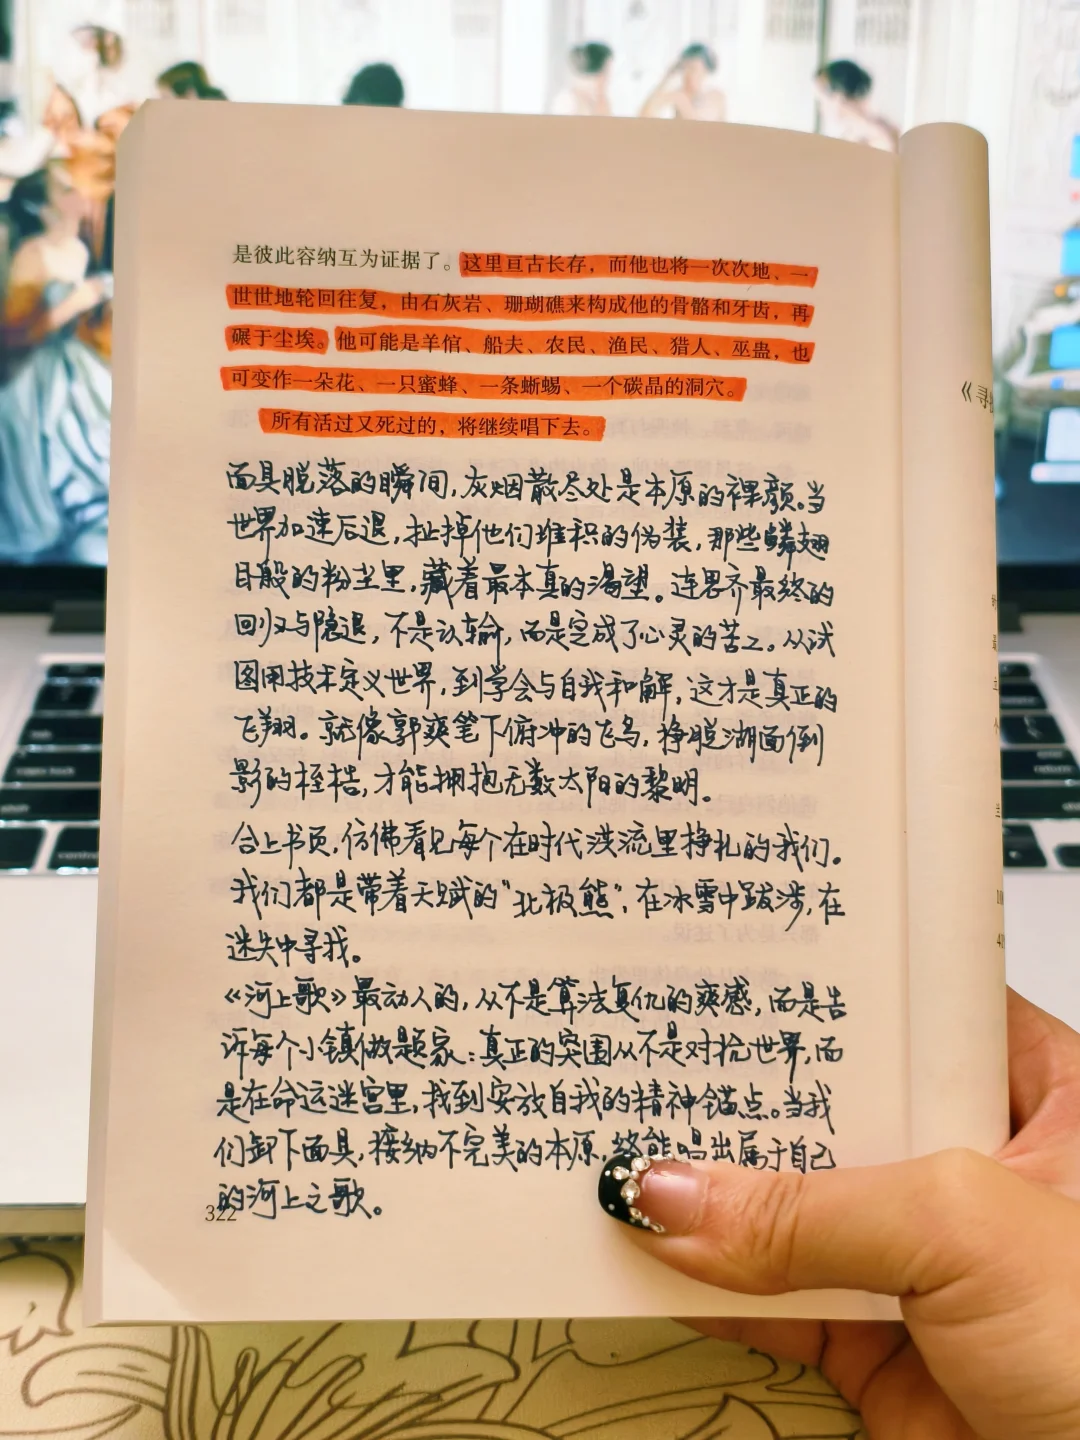 是彼此容纳互为证据了。这里亘古长存，而他也将一次次地、一
世世地轮回往复，由石灰岩、珊瑚礁来构成他的骨骼和牙齿，再
碾于尘埃。他可能是羊倌、船夫、农民、渔民、猎人、巫蛊，也
可变作一朵花、一只蜜蜂、一条蜥蜴、一个碳晶的洞穴。
所有活过又死过的，将继续唱下去。
面具脱落的瞬间，灰烟散尽处是本原的裸颜。当
世界加速后退，扯掉他们堆积的伪装，那些鳞翅
目般的粉尘里，藏着最本真的渴望。连思齐最终的
回归与隐退，不是认输，而是完成了心灵的苦工。从试
图用技术定义世界，到学会与自我和解，这才是真正的
飞翔。就像郭爽笔下俯冲的飞鸟，挣脱湖面倒
影的桎梏，才能拥抱无数太阳的黎明。
合上书页，仿佛看见每个在时代洪流里挣扎的我们。
我们都是带着天赋的“北极熊”，在冰雪中跋涉，在
迷失中寻我。
《河上歌》最动人的，从不是算法复仇的爽感，而是告
诉每个小镇做题家：真正的突围从不是对抗世界，而
是在命运迷宫里，找到安放自我的精神锚点。当我
们卸下面具，接纳不完美的本原，终能唱出属于自己
的河上之歌。
322
《寻